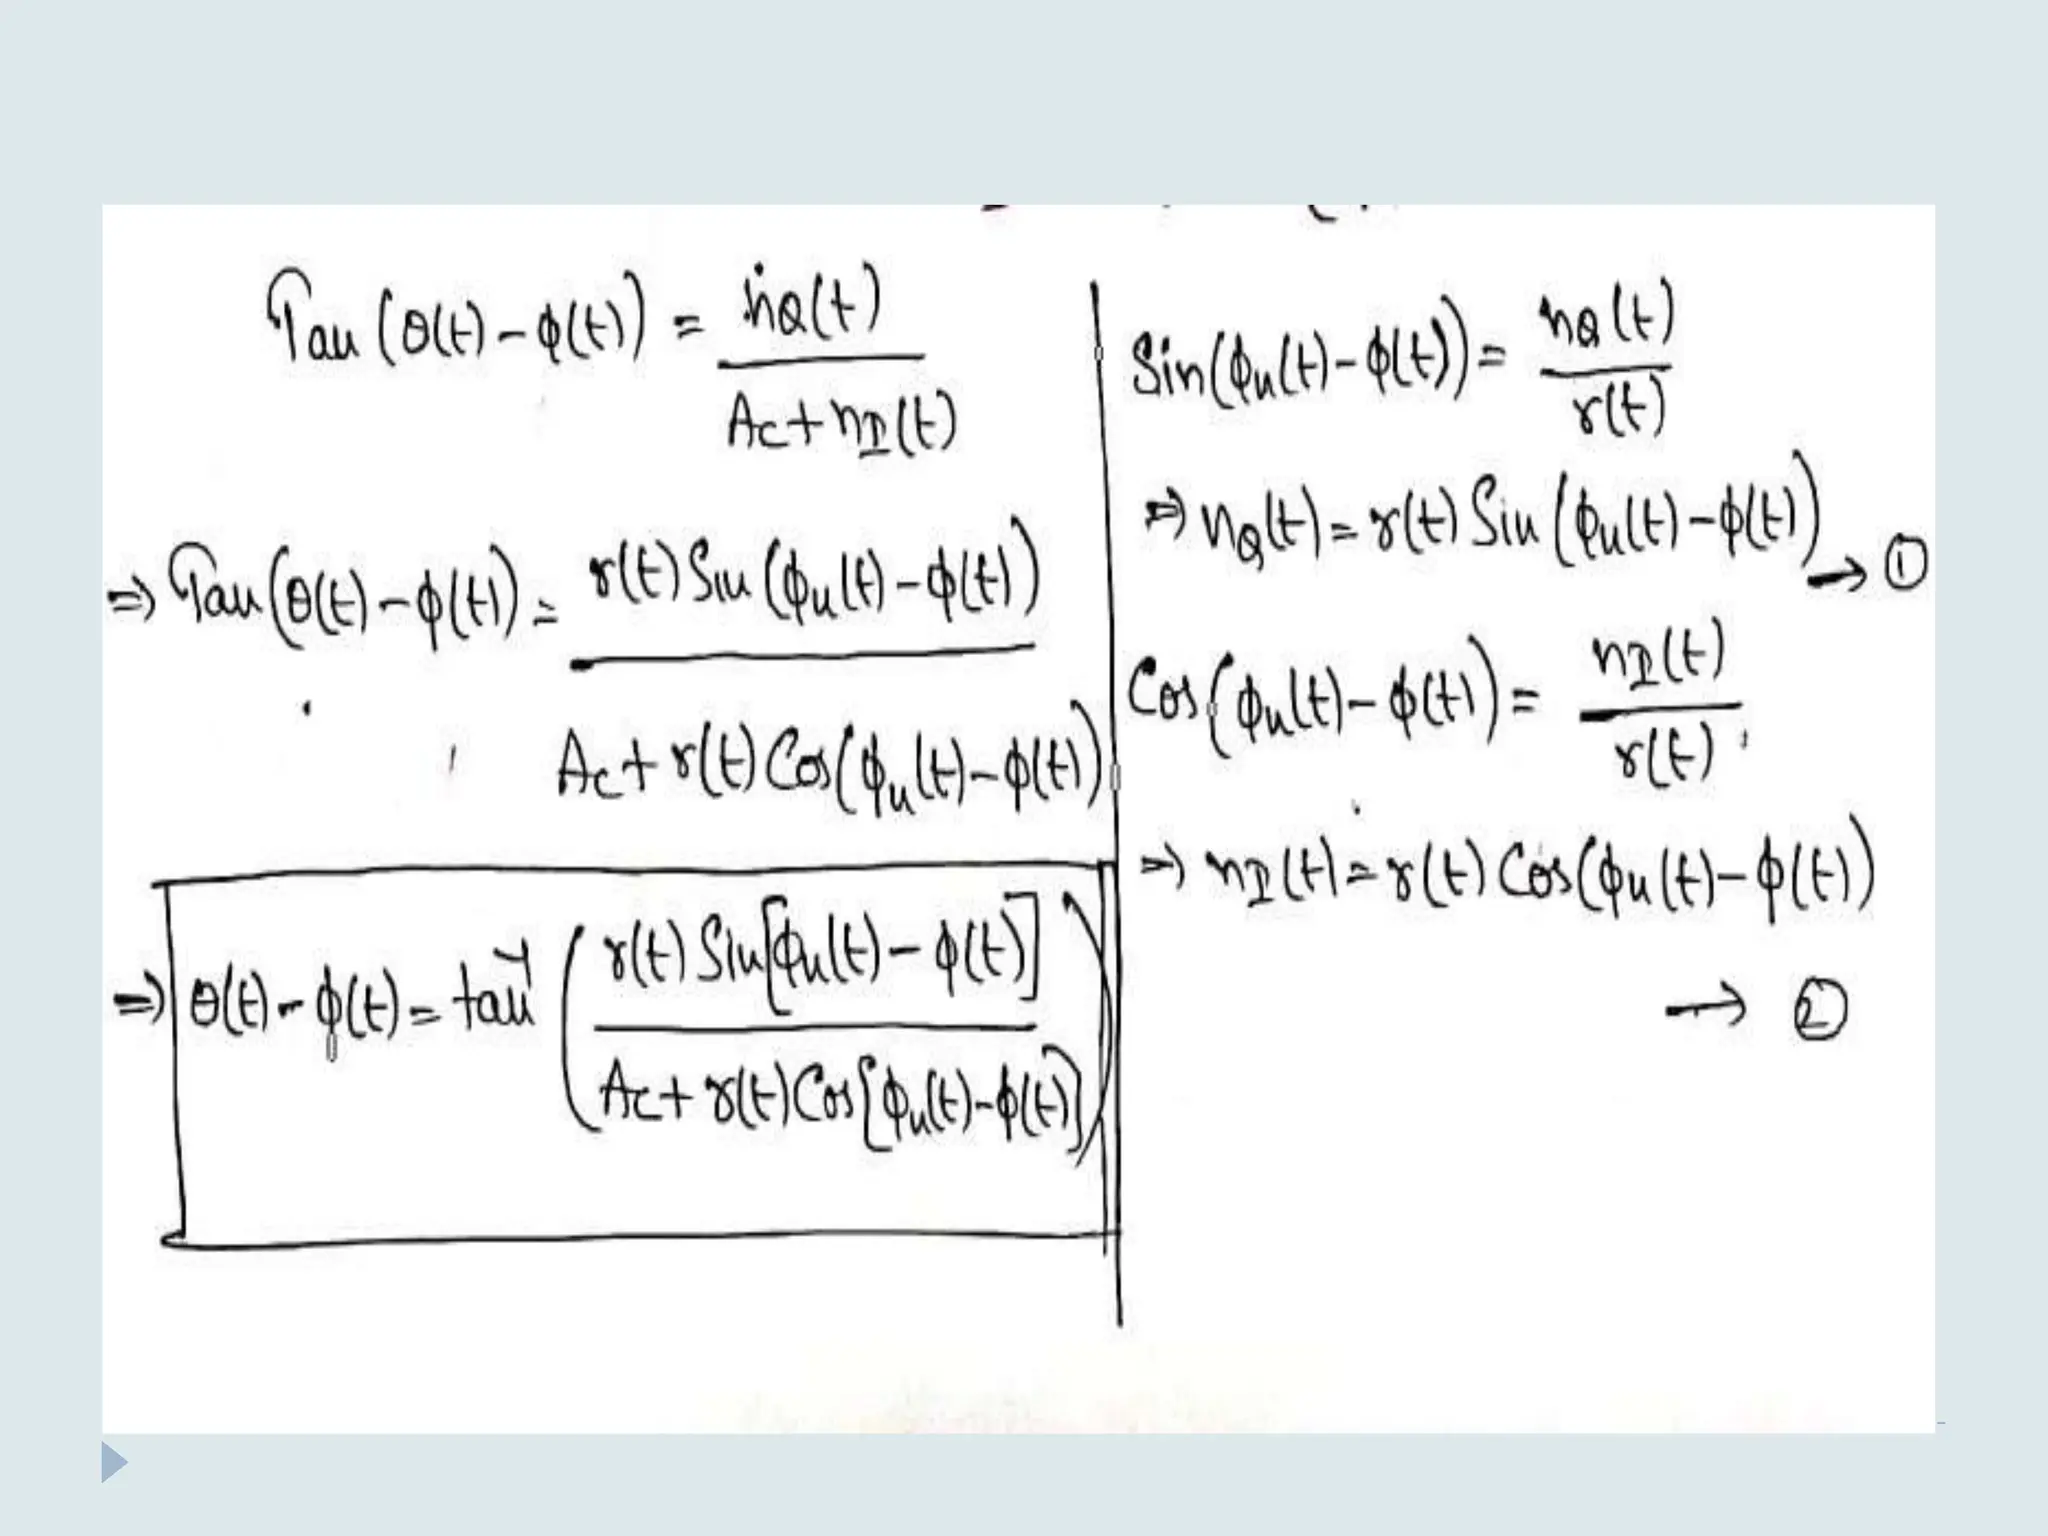 Tan (θ(t) - φ(t)) = nQ(t) / Ac + nI(t)
⇒ Tan (θ(t) - φ(t)) = r(t) Sin (φn(t) - φ(t)) / Ac + r(t) Cos (φn(t) - φ(t))
⇒ θ(t) - φ(t) = tan⁻¹ ( r(t) Sin [φn(t) - φ(t)] / Ac + r(t) Cos [φn(t) - φ(t)] )
Sin (φn(t) - φ(t)) = nQ(t) / r(t)
⇒ nQ(t) = r(t) Sin (φn(t) - φ(t))
→ ①
Cos (φn(t) - φ(t)) = nI(t) / r(t)
⇒ nI(t) = r(t) Cos (φn(t) - φ(t))
→ ②